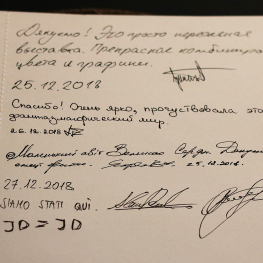 Дякуємо! Это просто нереальная
выставка. Прекрасное комбиниро
цвета и графики.
25.12.2018
Спасибо! Очень ярко, прочувствовала это
фантазмафический мир.
26.12.2018
Маленький світ Великио Сердця Дякую
25.12.2018.
27.12.2018
SIAMO STATI QUI.
JD = JD